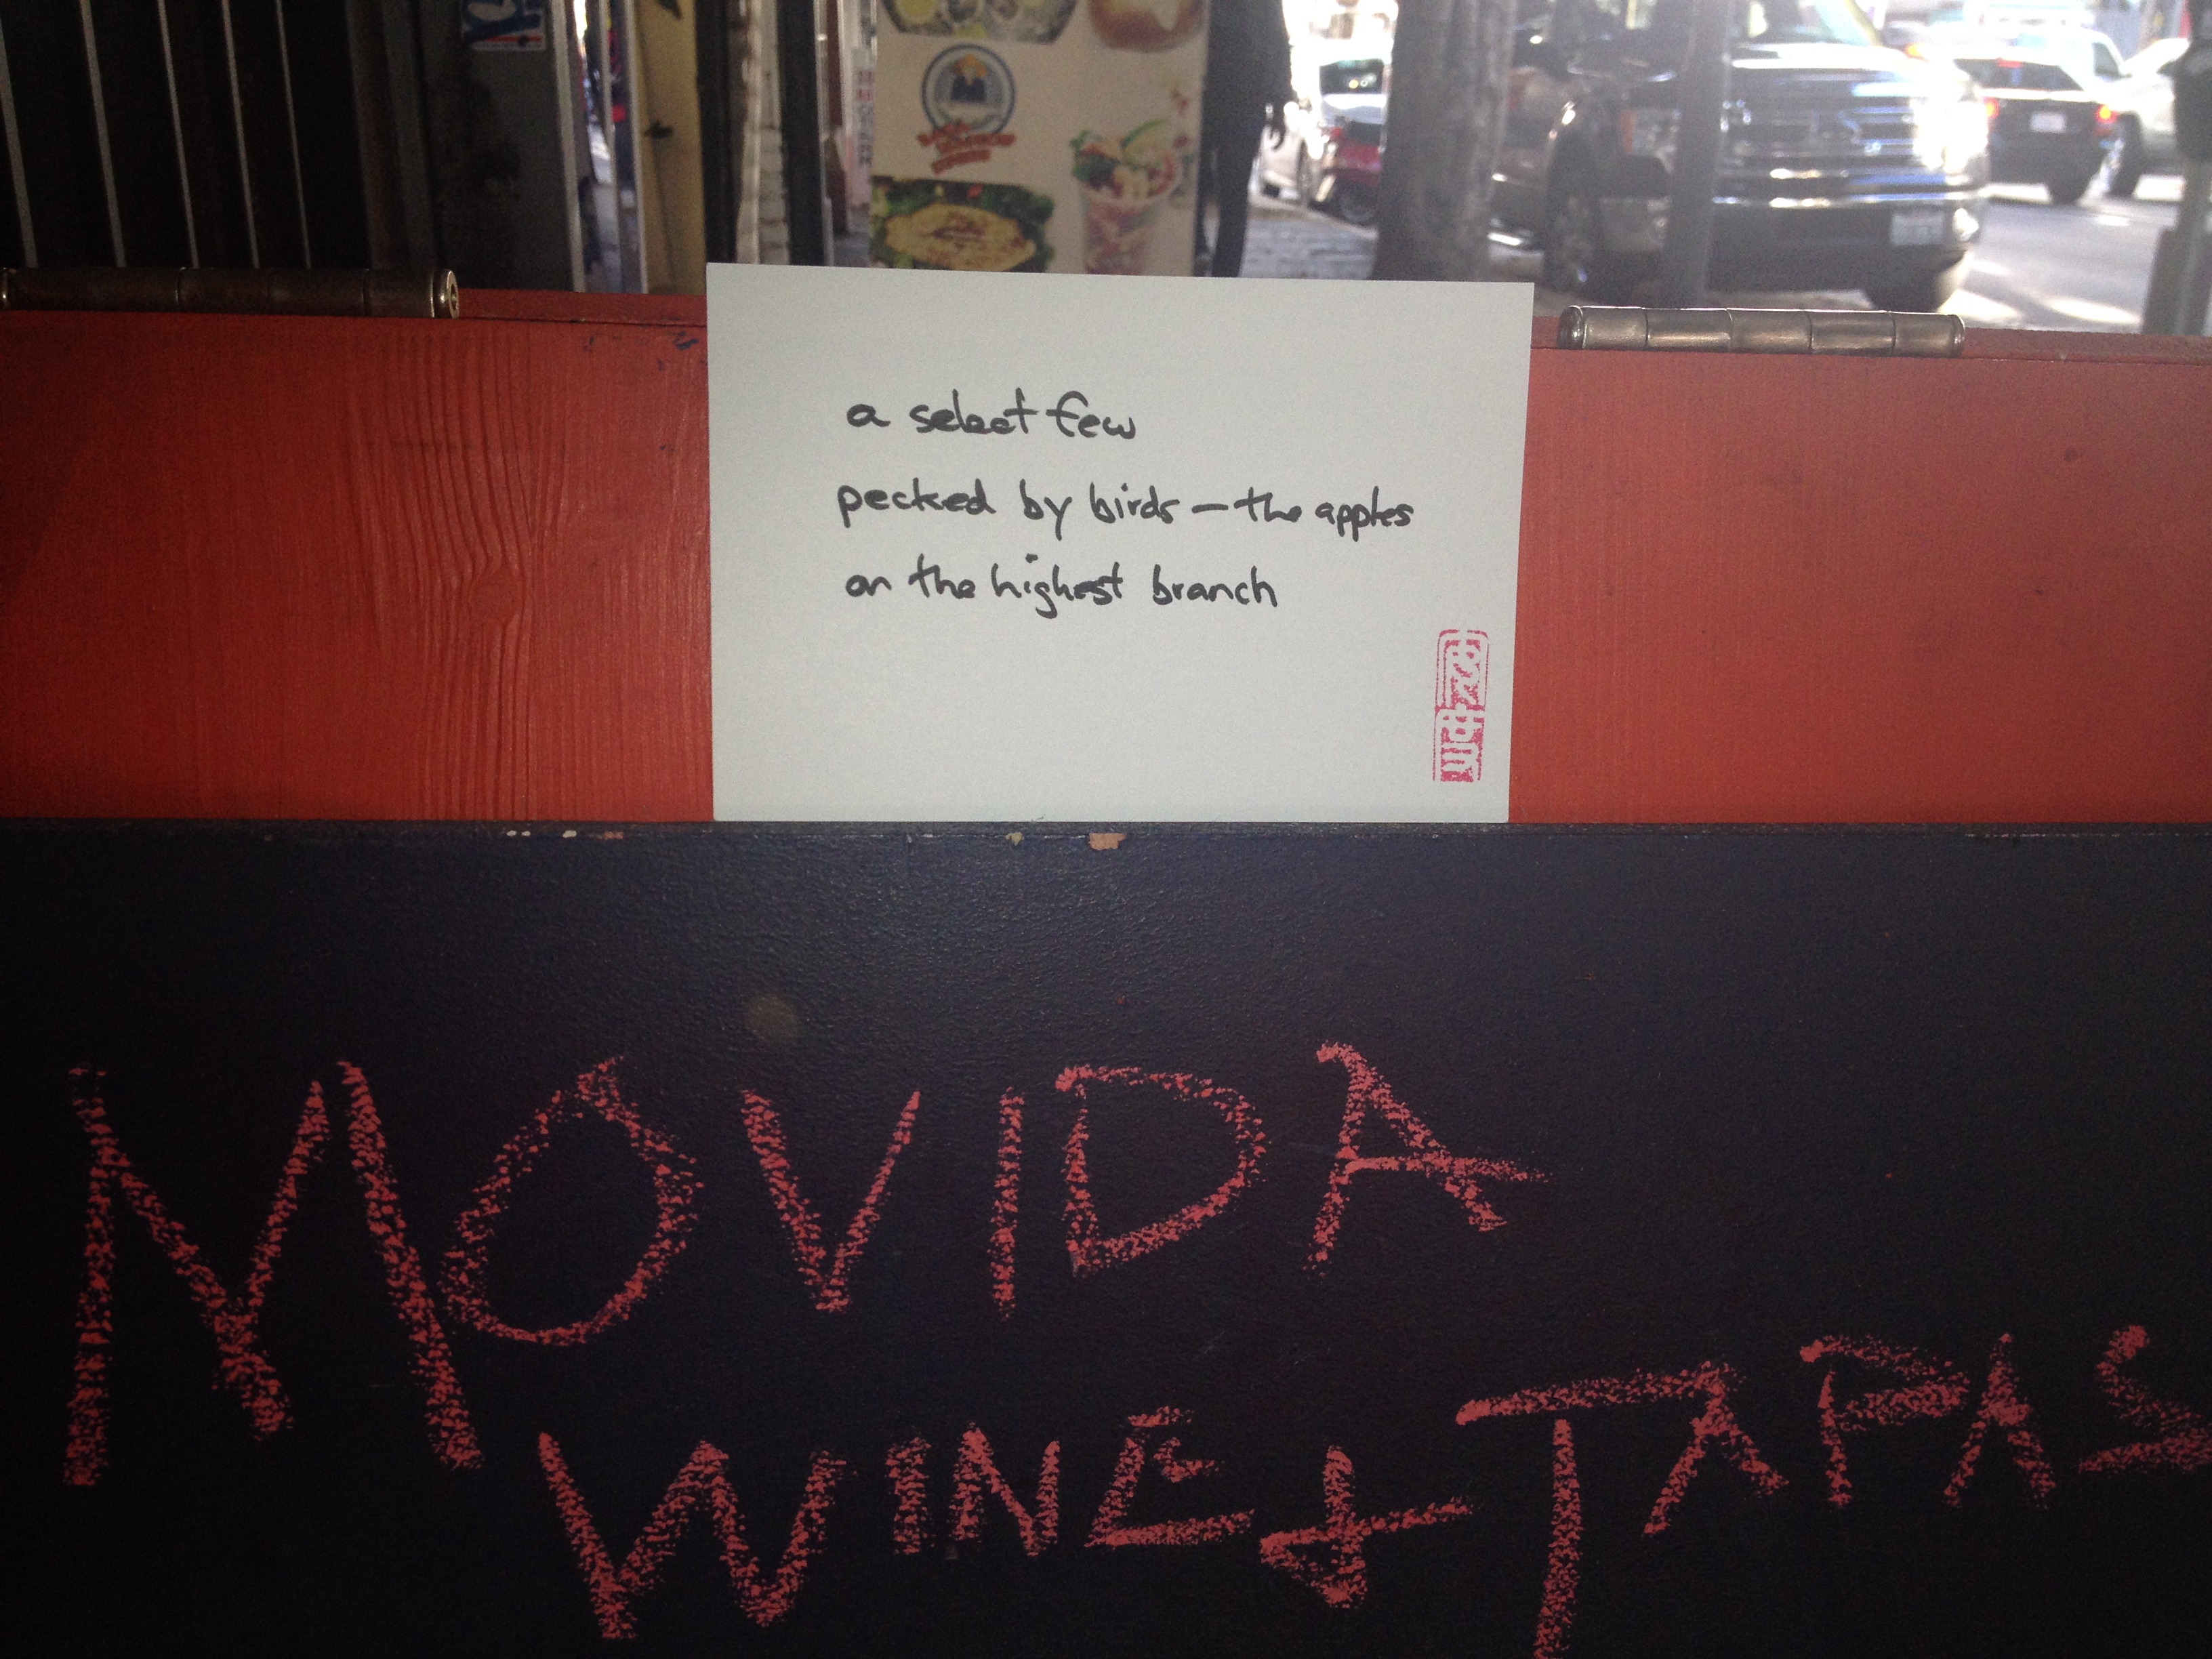 a select few
pecked by birds — the apples
on the highest branch
MOVIDA
WINE + TAPAS